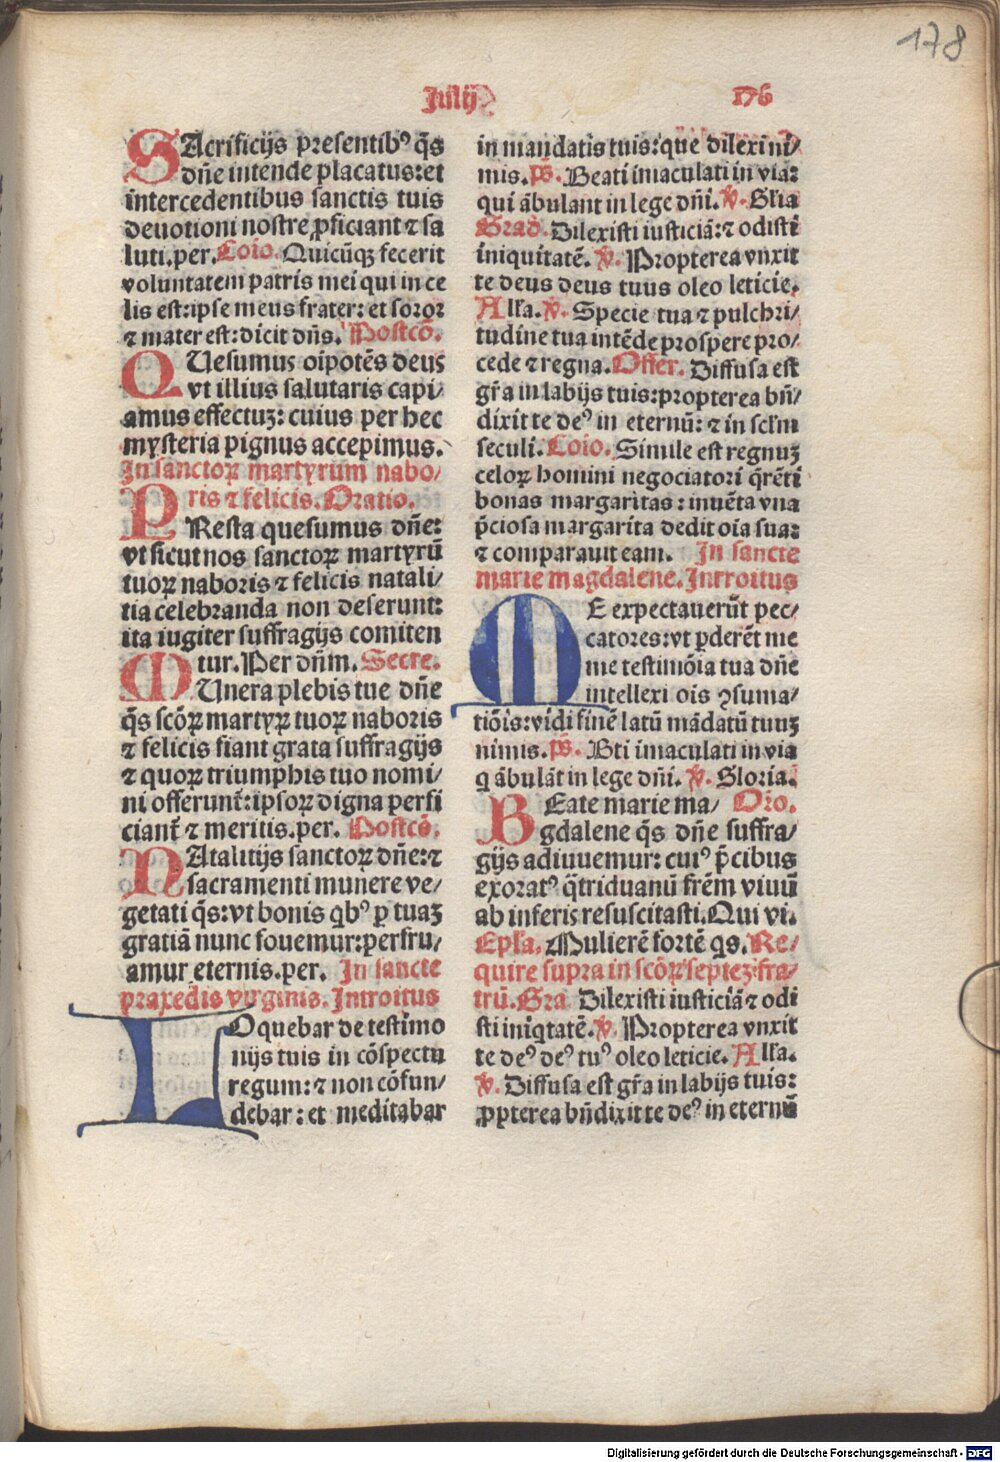 178
Julij
176
SAcrificijs presentibꝰ q̄s
dn̄e intende placatus: et
intercedentibus sanctis tuis
deuotioni nostre ꝓficiant ⁊ sa
luti.per. Coīo. Quicūqꝫ fecerit
voluntatem patris mei qui in ce
lis est: ipse meus frater: et soror
⁊ mater est: dicit dn̄s. Postcō.
QUesumus oīpotēs deus
vt illius salutaris capi/
amus effectuꝫ: cuius per hec
mysteria pignus accepimus.
In sanctoꝝ martyrum nabo/
ris ⁊ felicis. Oratio.
PResta quesumus dn̄e:
vt sicut nos sanctoꝝ martyrū
tuoꝝ naboris ⁊ felicis natali/
tia celebranda non deserunt:
ita iugiter suffragijs comiten
tur. Per dn̄m. Secre.
MUnera plebis tue dn̄e
q̄s scōꝝ martyꝝ tuoꝝ naboris
⁊ felicis fiant grata suffragijs
⁊ quoꝝ triumphis tuo nomi/
ni offerunt̄: ipsoꝝ digna perfi
ciant̄ ⁊ meritis.per. Postcō.
NAtalitijs sanctoꝝ dn̄e: ⁊
sacramenti munere ve/
getati q̄s: vt bonis qbꝰ ꝑ tuaꝫ
gratiā nunc fouemur: perfru/
amur eternis.per. In sancte
praxedis virginis. Introitus
LOquebar de testimo
nijs tuis in cōspectu
regum: ⁊ non cōfun/
debar: et meditabar
in mandatis tuis: que dilexi ni/
mis. ps̄. Beati imaculati in via:
qui ābulant in lege dn̄i. ℣. Gl̄ia
Grad. Dilexisti iusticiā: ⁊ odisti
iniquitatē. ℣. Propterea vnxit
te deus deus tuus oleo leticie.
All̄a. ℣. Specie tua ⁊ pulchri/
tudine tua intēde prospere pro/
cede ⁊ regna. Offer. Diffusa est
gr̄a in labijs tuis: propterea bn̄/
dixit te deꝰ in eternū: ⁊ in scl̄m
seculi. Coīo. Simile est regnuꝫ
celoꝝ homini negociatori q̄rēti
bonas margaritas: inuēta vna
p̄ciosa margarita dedit oīa sua:
⁊ comparauit eam. In sancte
marie magdalene. Introitus
ME expectauerūt pec/
catores: vt ꝑderēt me
me testimōia tua dn̄e
intellexi oīs ꝯsuma/
tiōis: vidi finē latū mādatū tuuꝫ
nimis. ps̄. Bt̄i imaculati in via
q ābulāt in lege dn̄i. ℣. Gloria.
BEate marie ma/ Orō.
gdalene q̄s dn̄e suffra/
gijs adiuuemur: cuiꝰ p̄cibus
exoratꝰ q̄triduanū frēm viuū
ab inferis resuscitasti. Qui vi.
Epl̄a. Mulierē fortē qs. Re/
quire supra in scōꝝ septeꝫ fra/
trū. Gra Dilexisti iusticiā ⁊ odi
sti iniqtatē. ℣. Propterea vnxit
te deꝰ deꝰ tuꝰ oleo leticie. All̄a.
℣. Diffusa est gr̄a in labijs tuis:
ꝓpterea bn̄dixit te deꝰ in eternū
Digitalisierung gefördert durch die Deutsche Forschungsgemeinschaft - DFG